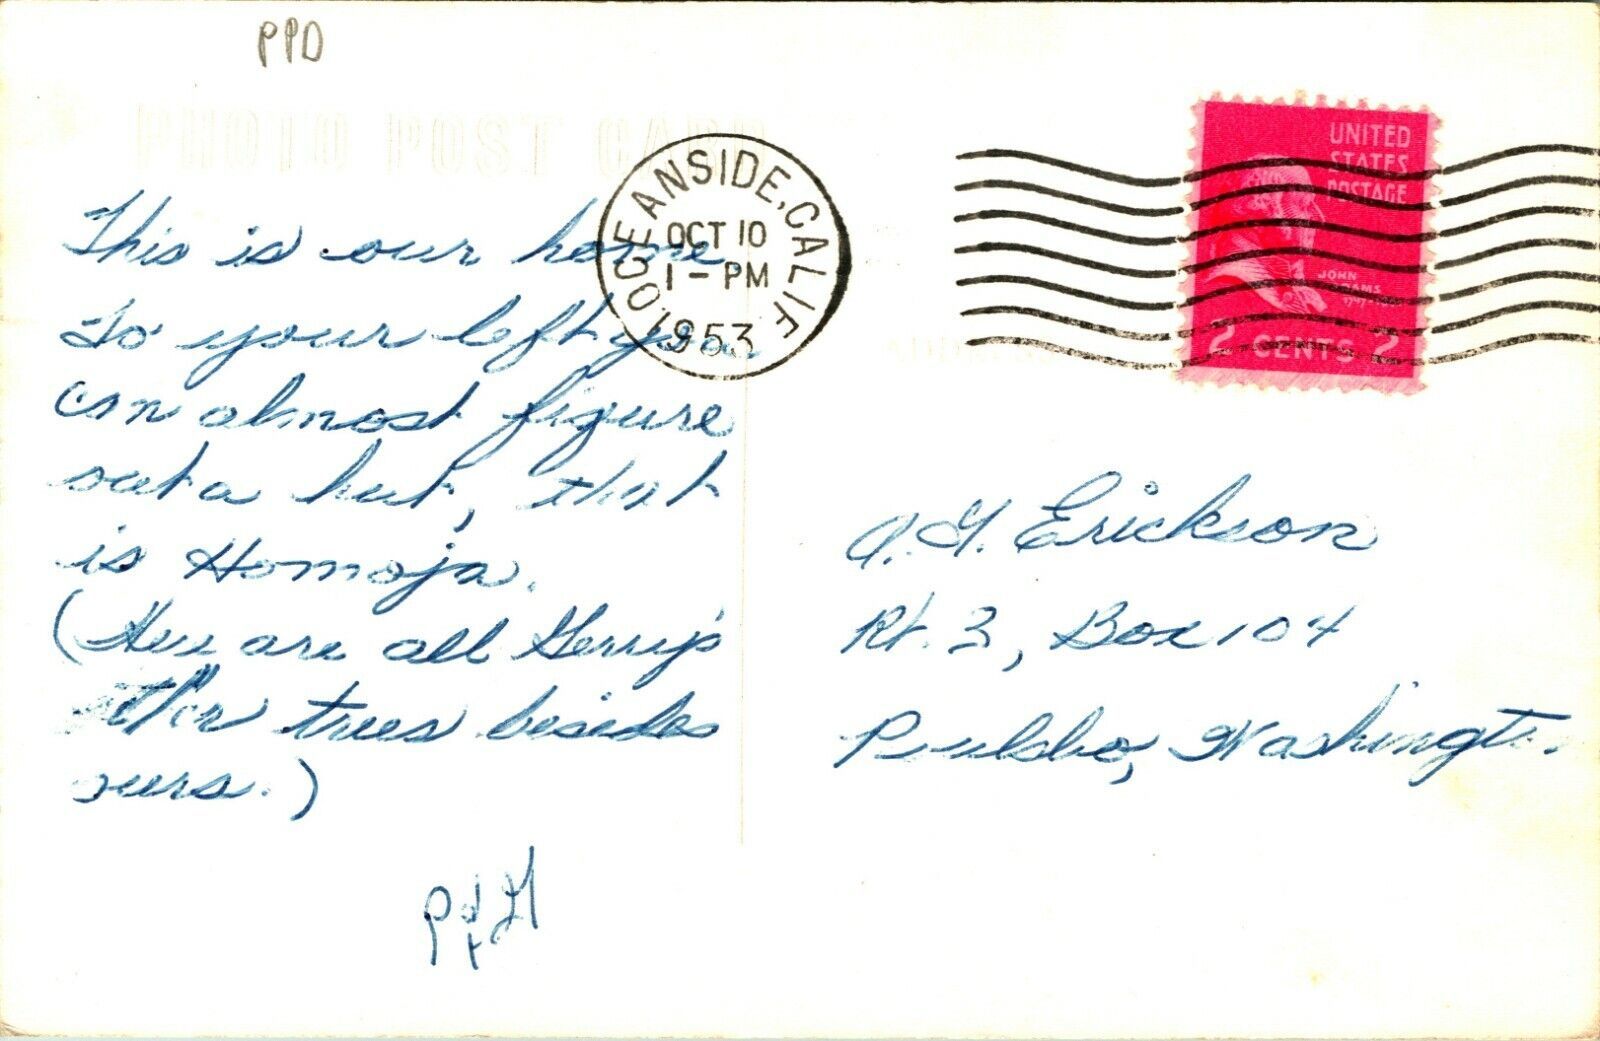 PPD
PHOTO POST CARD
OCEANSIDE, CALIF.
OCT 10
1 - PM
1953
UNITED
STATES
POSTAGE
JOHN
ADAMS
2 CENTS 2
ADDRESS
This is our home.
To your left you
can almost figure
out a hut, that
is Homoja.
(Here are all Gerry's
trees besides
ours.)
P & G
A. G. Erickson
Rt. 3, Box 104
Poulsbo, Washington